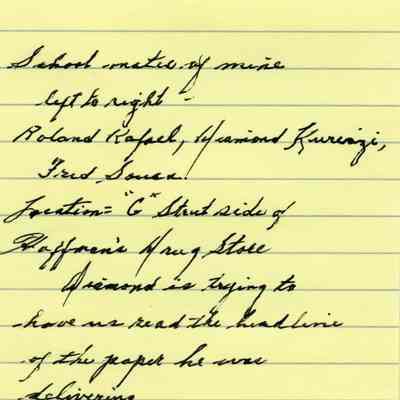 School mates of mine
left to right -
Roland Rafael, Diamond
Fred Sousa.
Location = "G" Street side of
Hoffman's Drug Store
Diamond is trying to
have us read the headline
of the paper he was
delivering